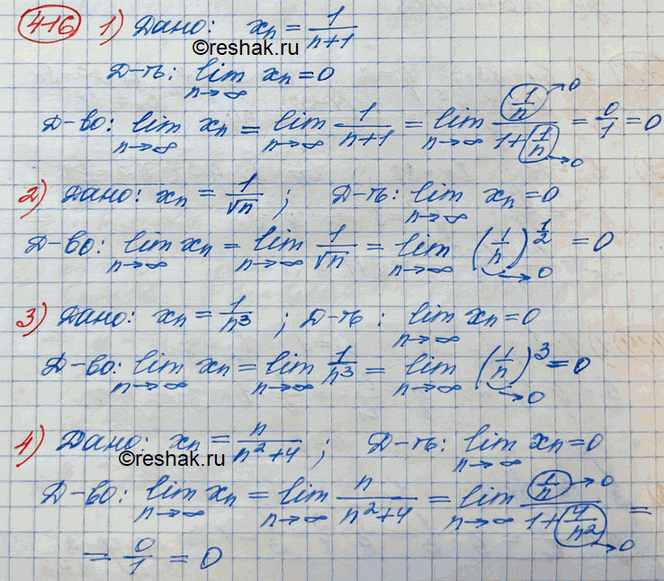 416 1) Дано: xₙ = 1/(n+1)
©reshak.ru
Д-ть: lim_{n→∞} xₙ = 0
Д-во: lim_{n→∞} xₙ = lim_{n→∞} 1/(n+1) = lim_{n→∞} (1/n →0)/(1+1/n →0) = 0/1 = 0
2) Дано: xₙ = 1/√n ; Д-ть: lim_{n→∞} xₙ = 0
Д-во: lim_{n→∞} xₙ = lim_{n→∞} 1/√n = lim_{n→∞} (1/n →0)^{1/2} = 0
3) Дано: xₙ = 1/n³ ; Д-ть: lim_{n→∞} xₙ = 0
Д-во: lim_{n→∞} xₙ = lim_{n→∞} 1/n³ = lim_{n→∞} (1/n →0)³ = 0
4) Дано: xₙ = n/(n²+4) ; Д-ть: lim_{n→∞} xₙ = 0
©reshak.ru
Д-во: lim_{n→∞} xₙ = lim_{n→∞} n/(n²+4) = lim_{n→∞} (1/n →0)/(1+4/n² →0) =
= 0/1 = 0